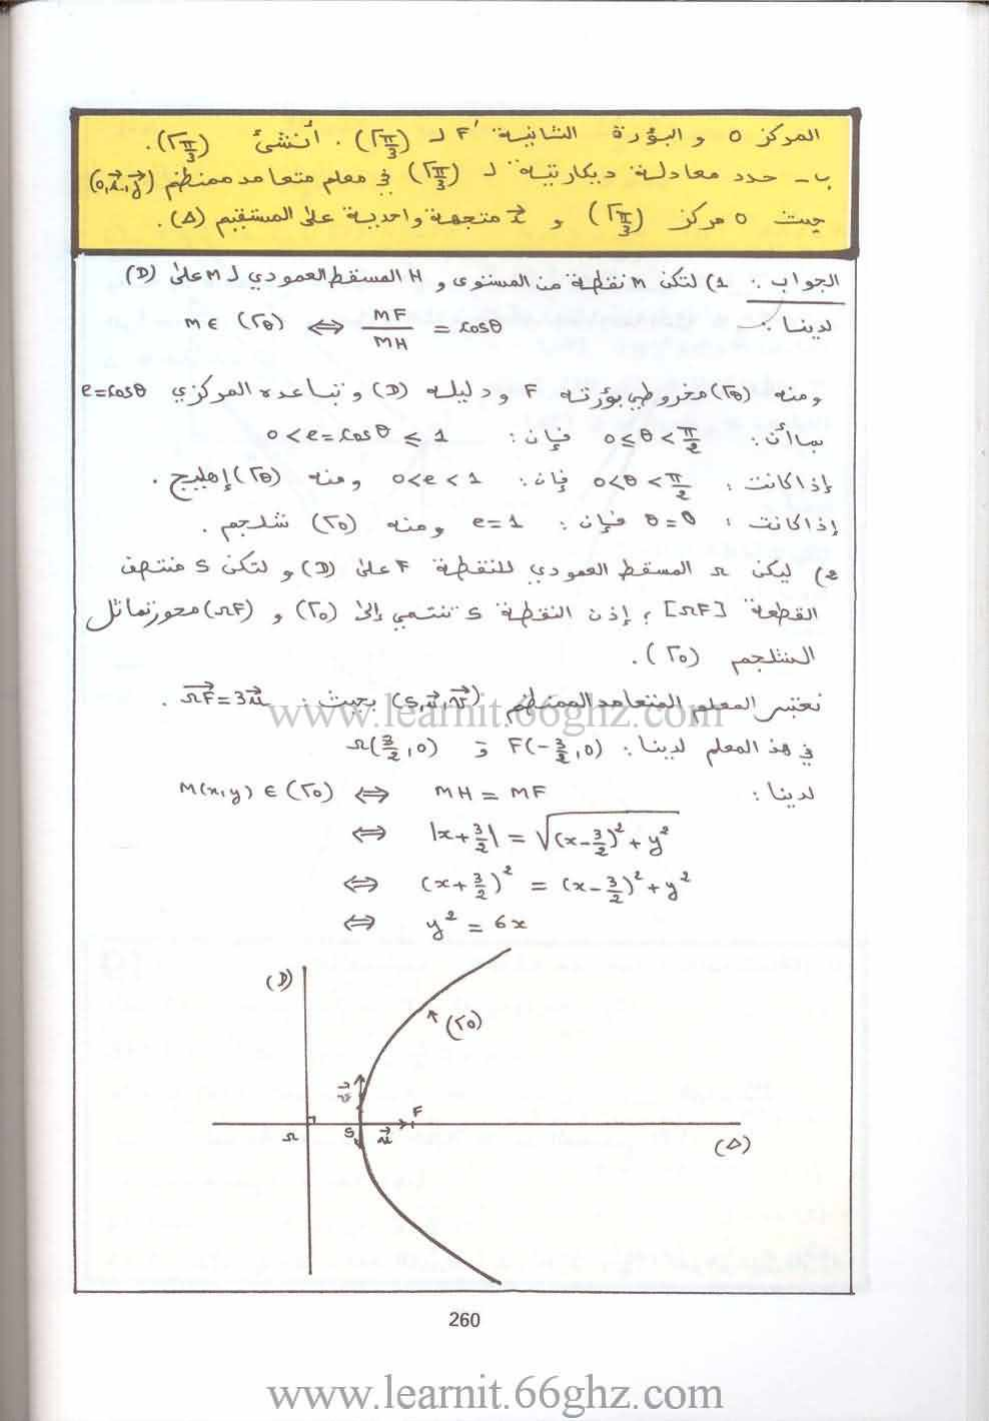 المركز O و البؤرة الثانية F' لـ (Γπ/3) . أنشئ (Γπ/3).
ب- حدد معادلة ديكارتية لـ (Γπ/3) في معلم متعامد ممنظم (O,i⃗,j⃗)
حيث O مركز (Γπ/3) و i⃗ متجهة واحدية على المستقيم (Δ).
الجواب : 1) لتكن M نقطة من المستوى و H المسقط العمودي لـ M على (D)
لدينا : M ∈ (Γθ) ⇔ MF/MH = cosθ
ومنه (Γθ) مخروطي بؤرته F ودليله (D) وتباعده المركزي e=cosθ
بما أن : 0≤θ<π/2 فإن : 0<e=cosθ≤1
إذا كانت : 0<θ<π/2 فإن : 0<e<1 ومنه (Γθ) إهليلج .
إذا كانت : θ=0 فإن : e=1 ومنه (Γ0) شلجم .
2) ليكن Ω المسقط العمودي للنقطة F على (D) و لتكن S منتصف
القطعة [ΩF] ؛ إذن النقطة S تنتمي إلى (Γ0) و (ΩF) محور تماثل
الشلجم (Γ0).
نعتبر المعلم المتعامد الممنظم (S,u⃗,v⃗) بحيث : ΩF⃗=3u⃗ .
في هذ المعلم لدينا : F(-3/2,0) و Ω(3/2,0)
لدينا : M(x,y) ∈ (Γ0) ⇔ MH = MF
⇔ |x+3/2| = √((x-3/2)²+y²)
⇔ (x+3/2)² = (x-3/2)²+y²
⇔ y² = 6x
(D)
(Γ0)
v⃗
F
Ω S u⃗
(Δ)
260
www.learnit.66ghz.com
www.learnit.66ghz.com